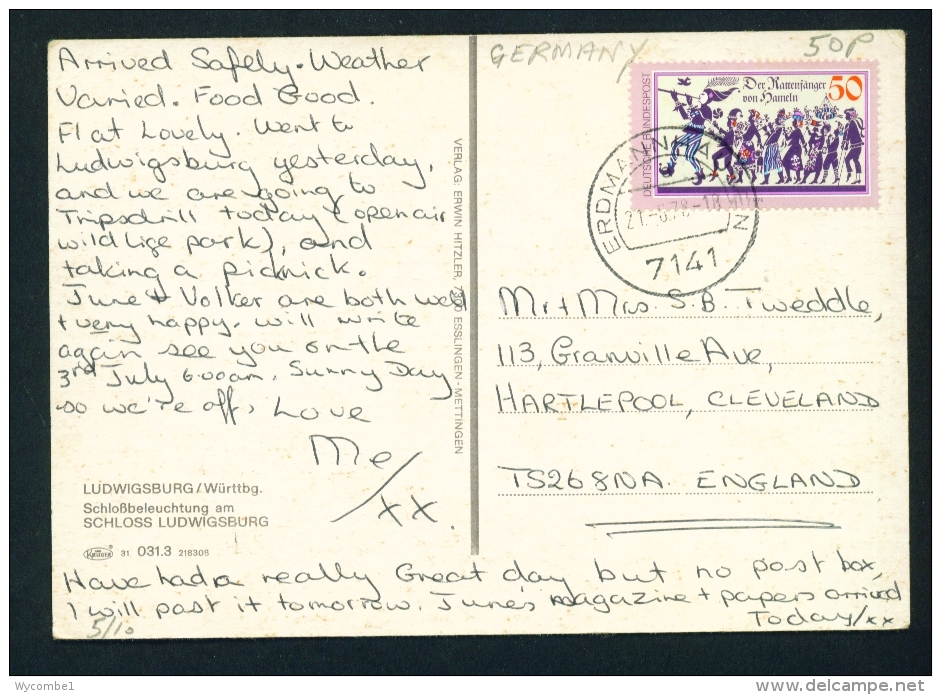 Arrived Safely. Weather
Varied. Food Good.
Flat Lovely. Went to
Ludwigsburg yesterday,
and we are going to
Tripsdrill today (open air
wild lige park), and
taking a picknick.
June & Volker are both well
+ very happy. will write
again see you on the
3rd July 6.00am. Sunny Day
so we're off, Love
Me/xx.
LUDWIGSBURG/Württbg.
Schloßbeleuchtung am
SCHLOSS LUDWIGSBURG
KRÜGER 31 031.3 218308
Have had a really Great day but no post box,
I will post it tomorrow. June's magazine + papers arrived
Today/xx
5/10
VERLAG: ERWIN HITZLER, 7300 ESSLINGEN-METTINGEN
GERMANY
50P
DEUTSCHE BUNDESPOST
Der Rattenfänger 50
von Hameln
7141
Mr + Mrs. S.B. Tweddle,
113, Granville Ave,
HARTLEPOOL, CLEVELAND
TS26 8NA. ENGLAND
Wycombe1
www.delcampe.net